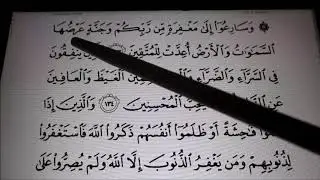 وَسَارِعُوٓا۟ إِلَىٰ مَغْفِرَةٍ مِّن رَّبِّكُمْ وَجَنَّةٍ عَرْضُهَا
السَّمَٰوَٰتُ وَالْأَرْضُ أُعِدَّتْ لِلْمُتَّقِينَ يُنفِقُونَ
فِي السَّرَّآءِ وَالضَّرَّآءِ الْغَيْظَ وَالْعَافِينَ
عَنِ الْمُحْسِنِينَ ١٣٤ وَالَّذِينَ إِذَا
فَٰحِشَةً أَوْ ظَلَمُوٓا۟ أَنفُسَهُمْ ذَكَرُوا۟ اللَّهَ فَاسْتَغْفَرُوا۟
لِذُنُوبِهِمْ وَمَن يَغْفِرُ الذُّنُوبَ إِلَّا اللَّهُ وَلَمْ يُصِرُّوا۟ عَلَىٰ